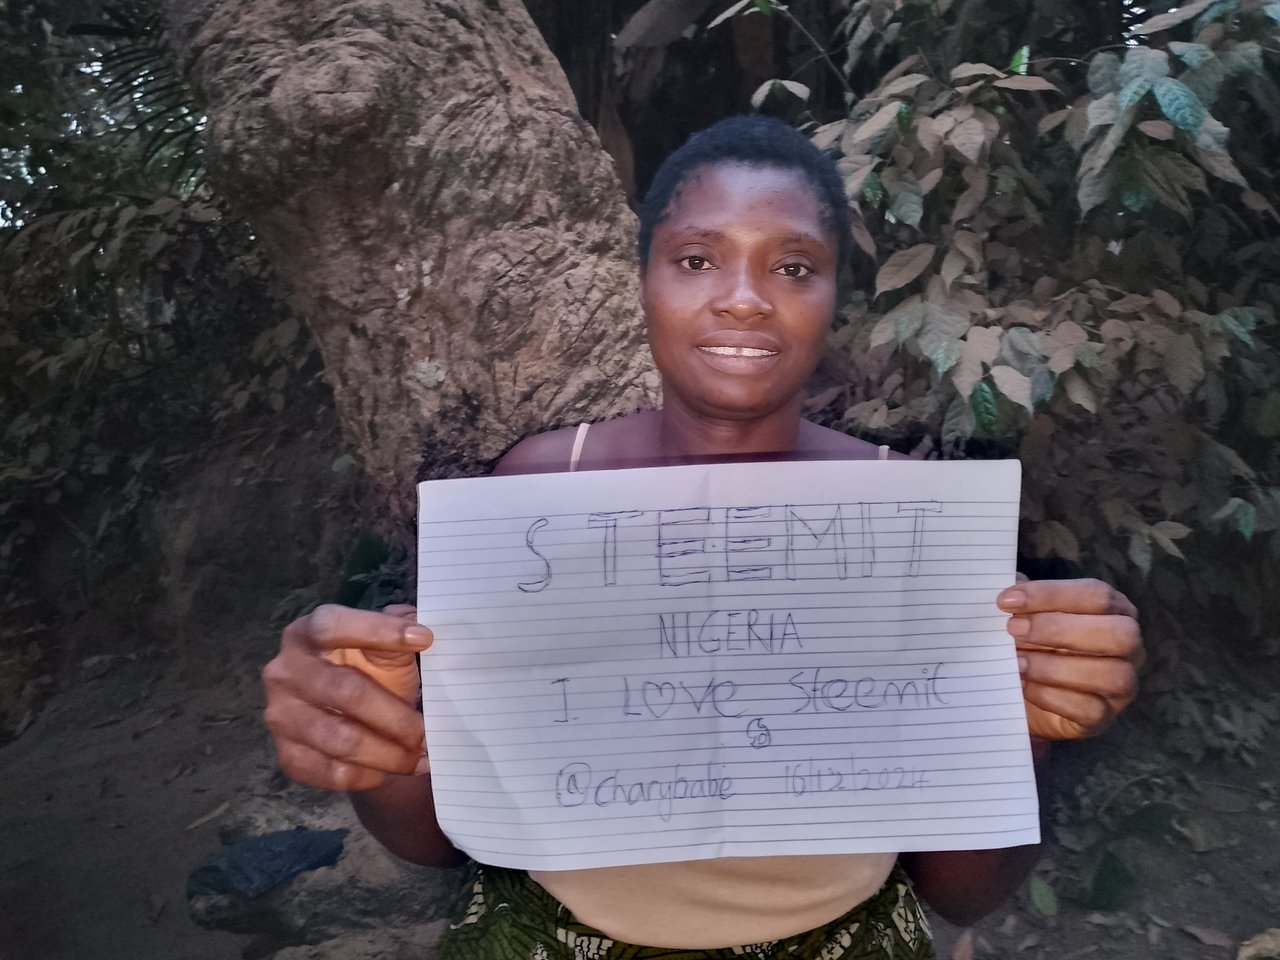 STEEMIT
NIGERIA
I LOVE Steemit
@charybabe 16/12/2024